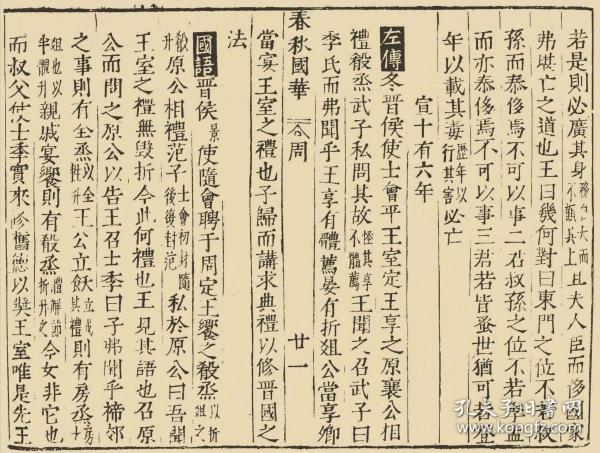 若是則必廣其身務自大而不顧其上且夫人臣而侈國家
弗堪亡之道也王曰幾何對曰東門之位不若叔
孫而泰侈焉不可以事二君叔孫之位不若季孟
而亦泰侈焉不可以事三君若皆蚤世猶可若登
年以載其毒登年以歷年以行其害必亡
宣十有六年
左傳冬晉侯使士會平王室定王享之原襄公相
禮殽烝武子私問其故怪其享不體薦王聞之召武子曰
季氏而弗聞乎王享有體薦宴有折俎公當享卿
春秋國華 周 廿一
當宴王室之禮也子歸而講求典禮以修晉國之
法
國語晉侯景使隨會聘于周定王饗之殽烝以折俎之
殽升原公相禮范子士會初封隨後復封范私於原公曰吾聞
王室之禮無毀折今此何禮也王見其語也召原
公而問之原公以告王召士季曰子弗聞乎禘郊
之事則有全烝以全牲升王公立飫立成其禮則有房烝房
俎也以半體升親戚宴饗則有殽烝體解節折升之今女非它也
而叔父使士季實來修舊德以獎王室唯是先王
孔夫子舊書網
book.kongfz.com